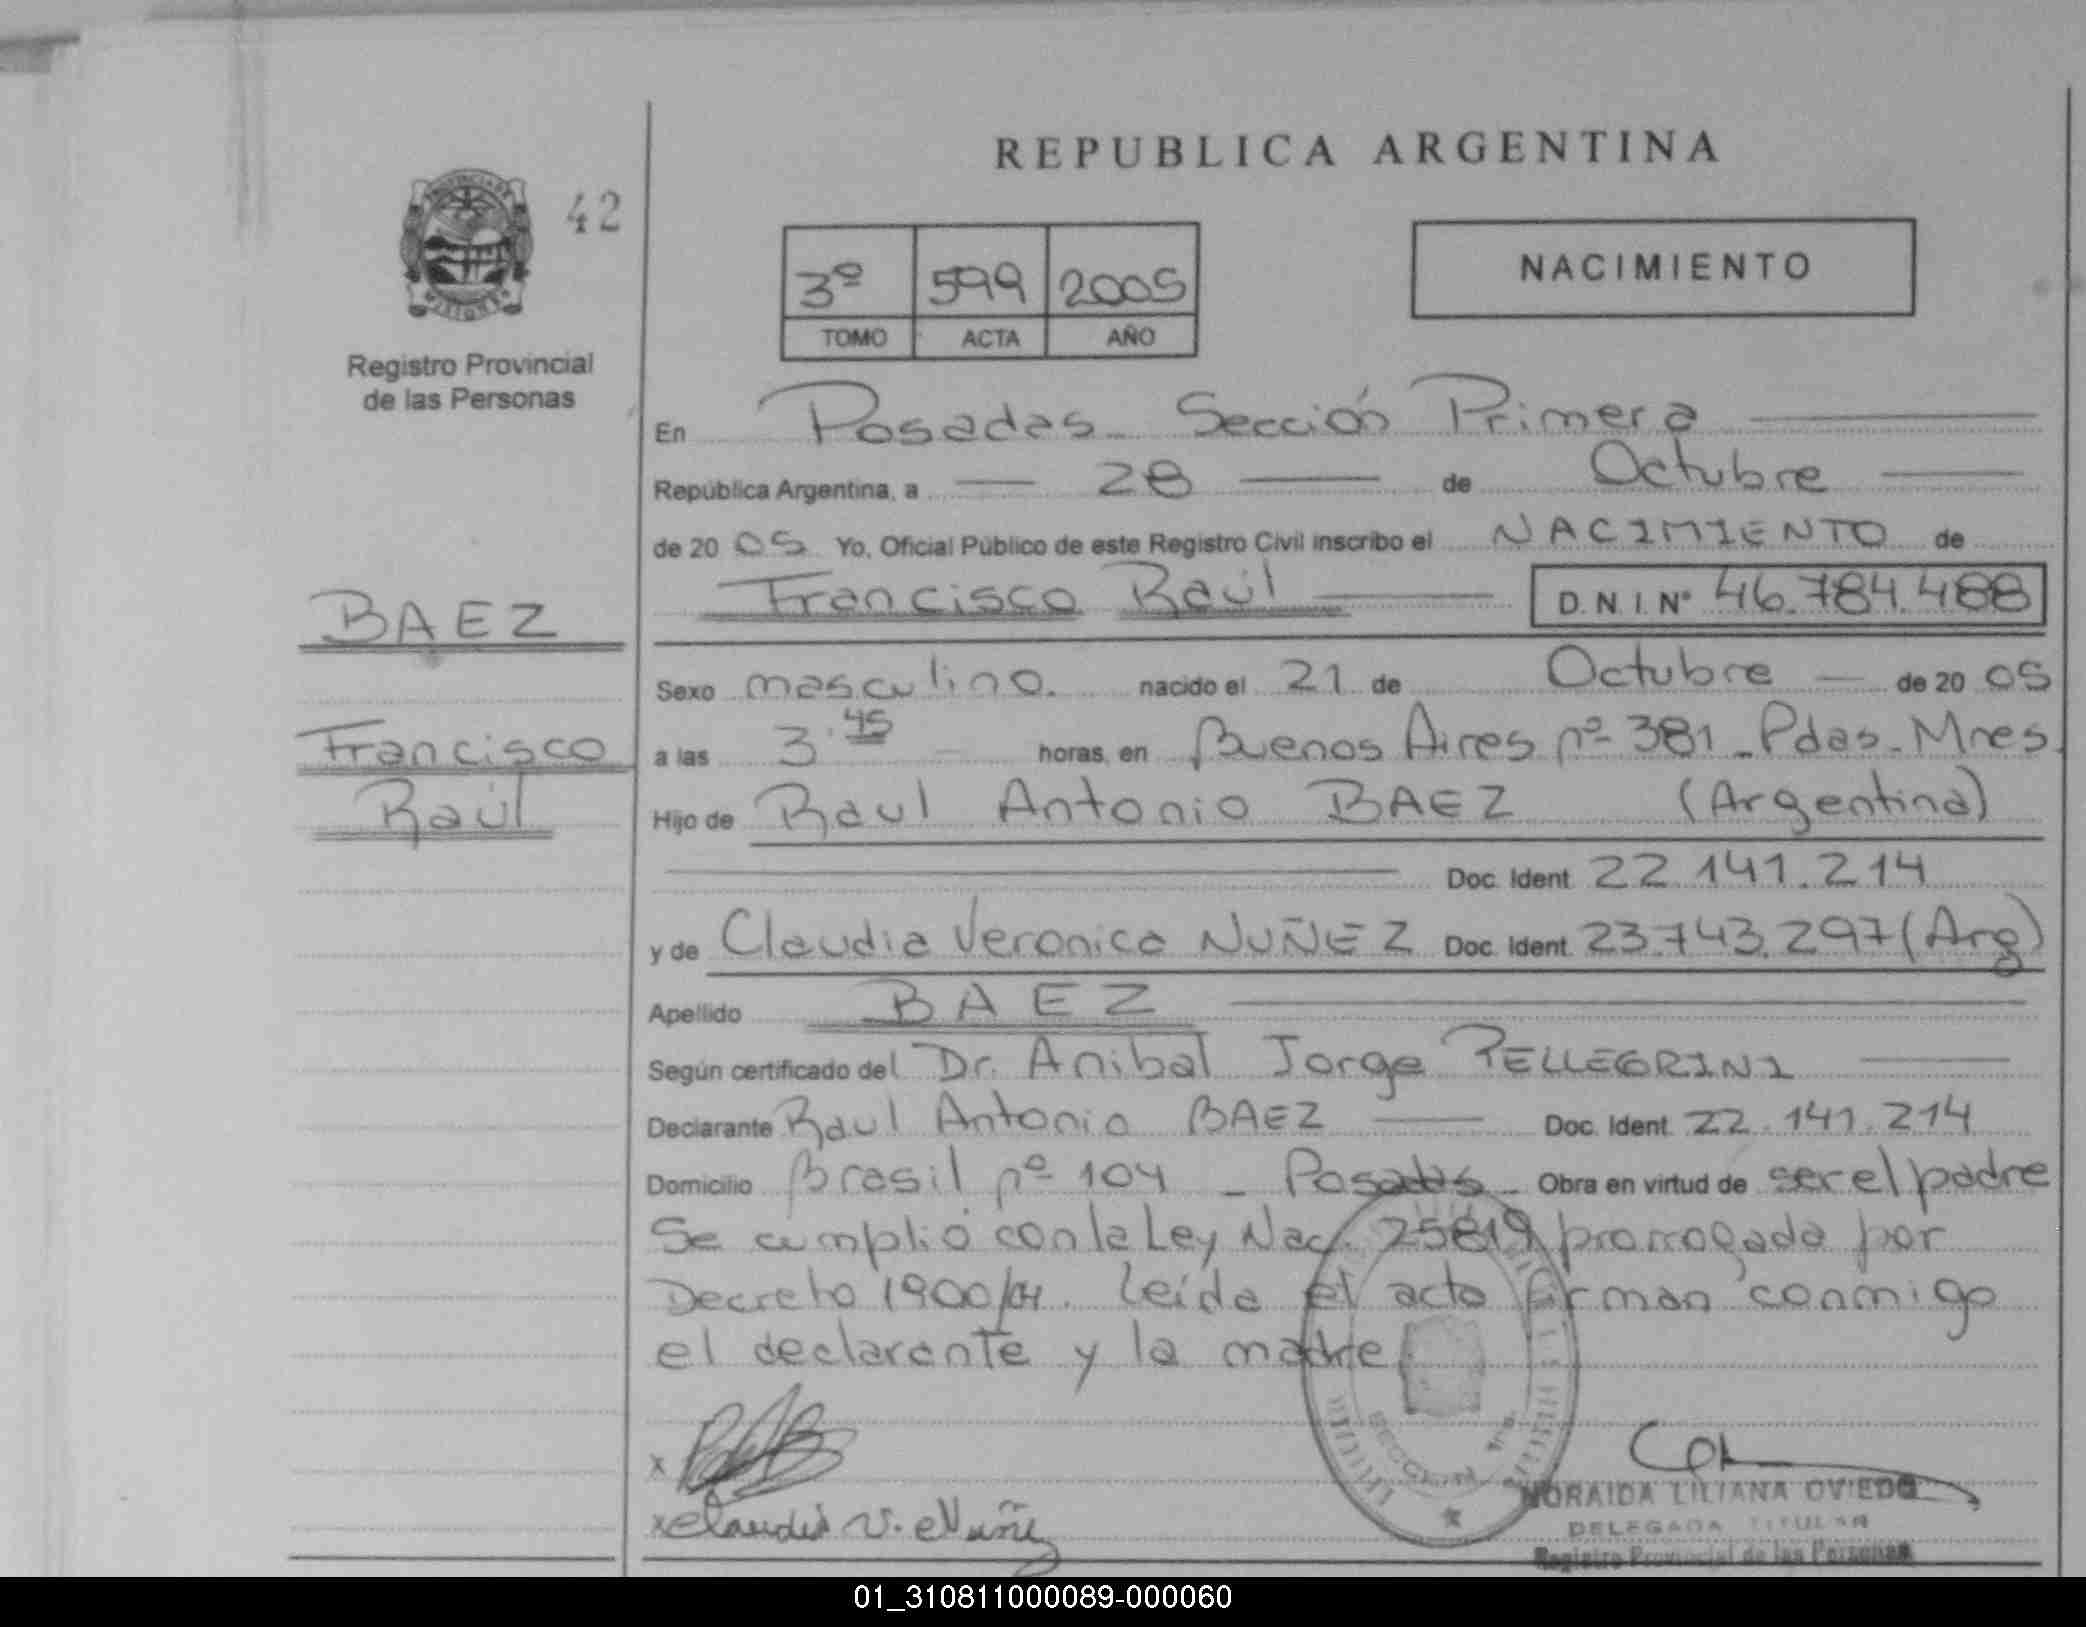 REPUBLICA ARGENTINA
PROVINCIA DE
MISIONES
42
Registro Provincial
de las Personas
3º 599 2005
TOMO ACTA AÑO
NACIMIENTO
En Posadas - Sección Primera
República Argentina, a 28 de Octubre
de 20 05 Yo, Oficial Público de este Registro Civil inscribo el NACIMIENTO de
Francisco Raúl D.N.I. Nº 46.784.488
BAEZ
Francisco
Raúl
Sexo masculino. nacido el 21 de Octubre de 20 05
a las 3.45 horas, en Buenos Aires nº 381 - Pdas - Mnes.
Hijo de Raul Antonio BAEZ (Argentina)
Doc. Ident. 22.141.214
y de Claudia Veronica NUÑEZ Doc. Ident. 23.743.297 (Arg)
Apellido BAEZ
Según certificado del Dr. Anibal Jorge PELLEGRINI
Declarante Raul Antonio BAEZ Doc. Ident. 22.141.214
Domicilio Brasil nº 104 - Posadas - Obra en virtud de ser el padre
Se cumplió con la Ley Nac. 25819 prorrogada por
Decreto 1900/04. Leída el acta firman conmigo
el declarante y la madre
x
x Claudia V. Nuñez
SECCION 1ra.
NORAIDA LILIANA OVIEDO
DELEGADA TITULAR
Registro Provincial de las Personas
01_310811000089-000060